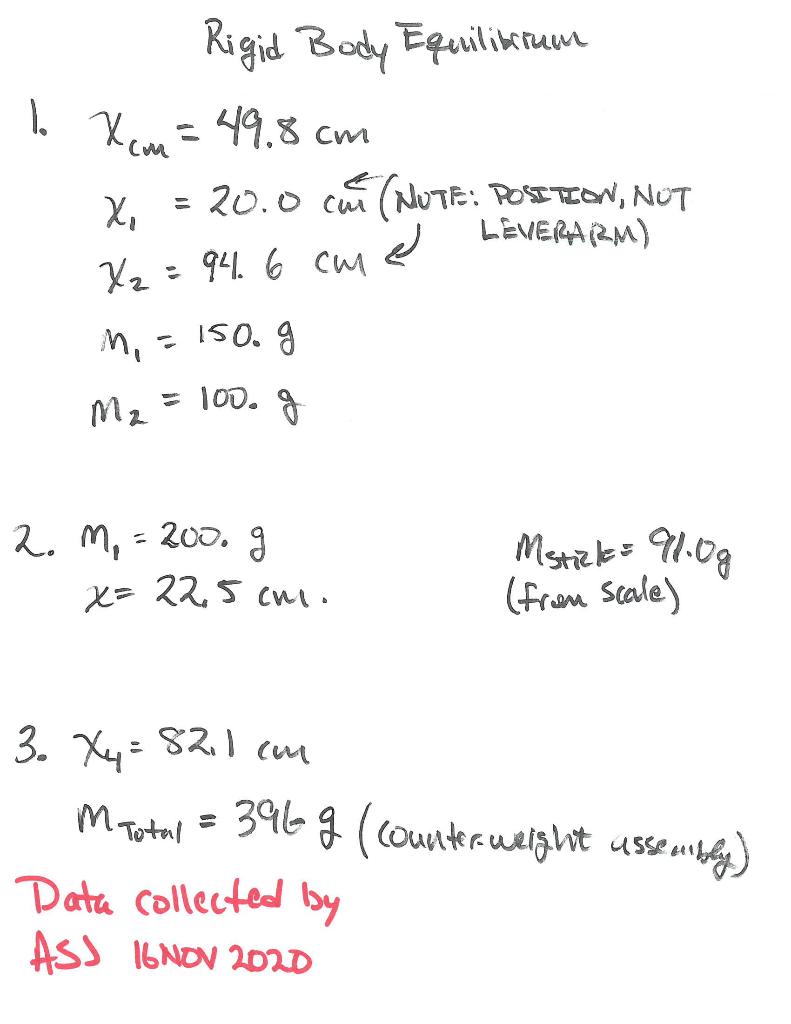 Rigid Body Equilibrium
1. Xcm = 49.8 cm
X1 = 20.0 cm (NOTE: POSITION, NOT
LEVERARM)
X2 = 94.6 cm
M1 = 150. g
M2 = 100. g
2. M1 = 200. g
x = 22.5 cm.
Mstick = 91.0g
(from scale)
3. X4 = 82.1 cm
M Total = 396 g (counter-weight assembly)
Data collected by
ASJ 16 NOV 2020